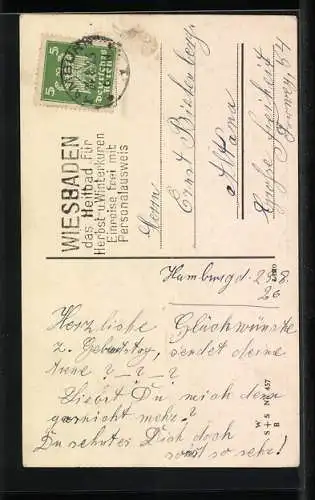 5 5
Deutsches Reich
WIESBADEN
das Heilbad für
Herbst u. Winterkuren
Einreise frei mit
Personalausweis
Herrn
Ernst
Altona
Grosse Freiheit 54
Hamburg d. 29.8.
26
Herzliche Glückwünsche
z. Geburtstag, sendet deine
? _ ? _ ?
Liebst Du mich denn
garnicht mehr?
Du sehntes Dich doch
sonst so sehr!
W
S+S No 457
B